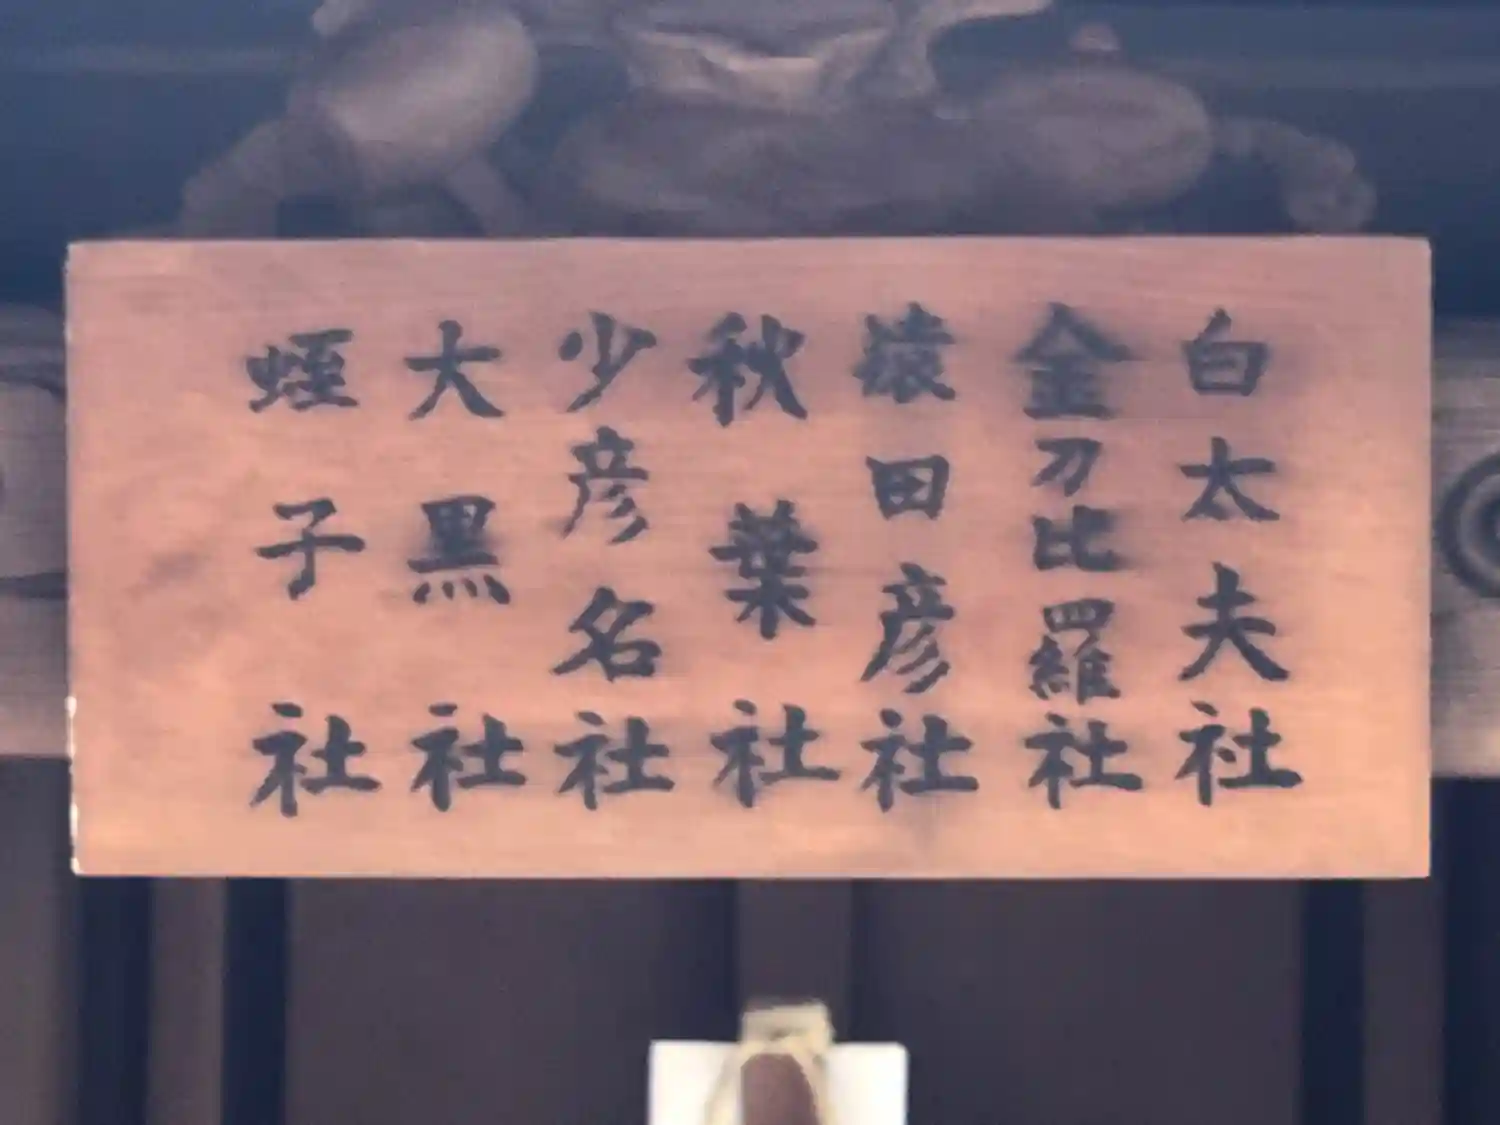 白太夫社
金刀比羅社
猿田彦社
秋葉社
少彦名社
大黒社
蛭子社